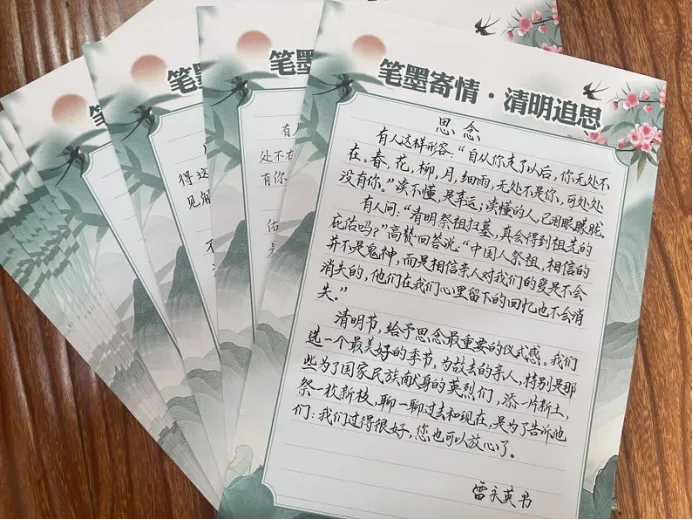 笔墨寄情·清明追思
思念
有人这样形容:“自从你走了以后,你无处不
在,春,花,柳,月,细雨,无处不是你,可处处
没有你。”读不懂,是幸运;读懂的人,已泪眼朦胧。
有人问:“清明祭祖扫墓,真会得到祖先的
庇佑吗?”高赞回答说:“中国人祭祖,相信的
并不是鬼神,而是相信亲人对我们的爱是不会
消失的,他们在我们心里留下的回忆也不会消
失。”
清明节,给予思念最重要的仪式感。我们
选一个最美好的季节,为故去的亲人,特别是那
些为了国家民族献身的英烈们,添一片新土,
祭一枚新枝,聊一聊过去和现在,是为了告诉他
们:我们过得很好,您也可以放心了。
雷永英书
笔墨
有人
处不在
有你
佑
是
笔
得这
见解
不
笔